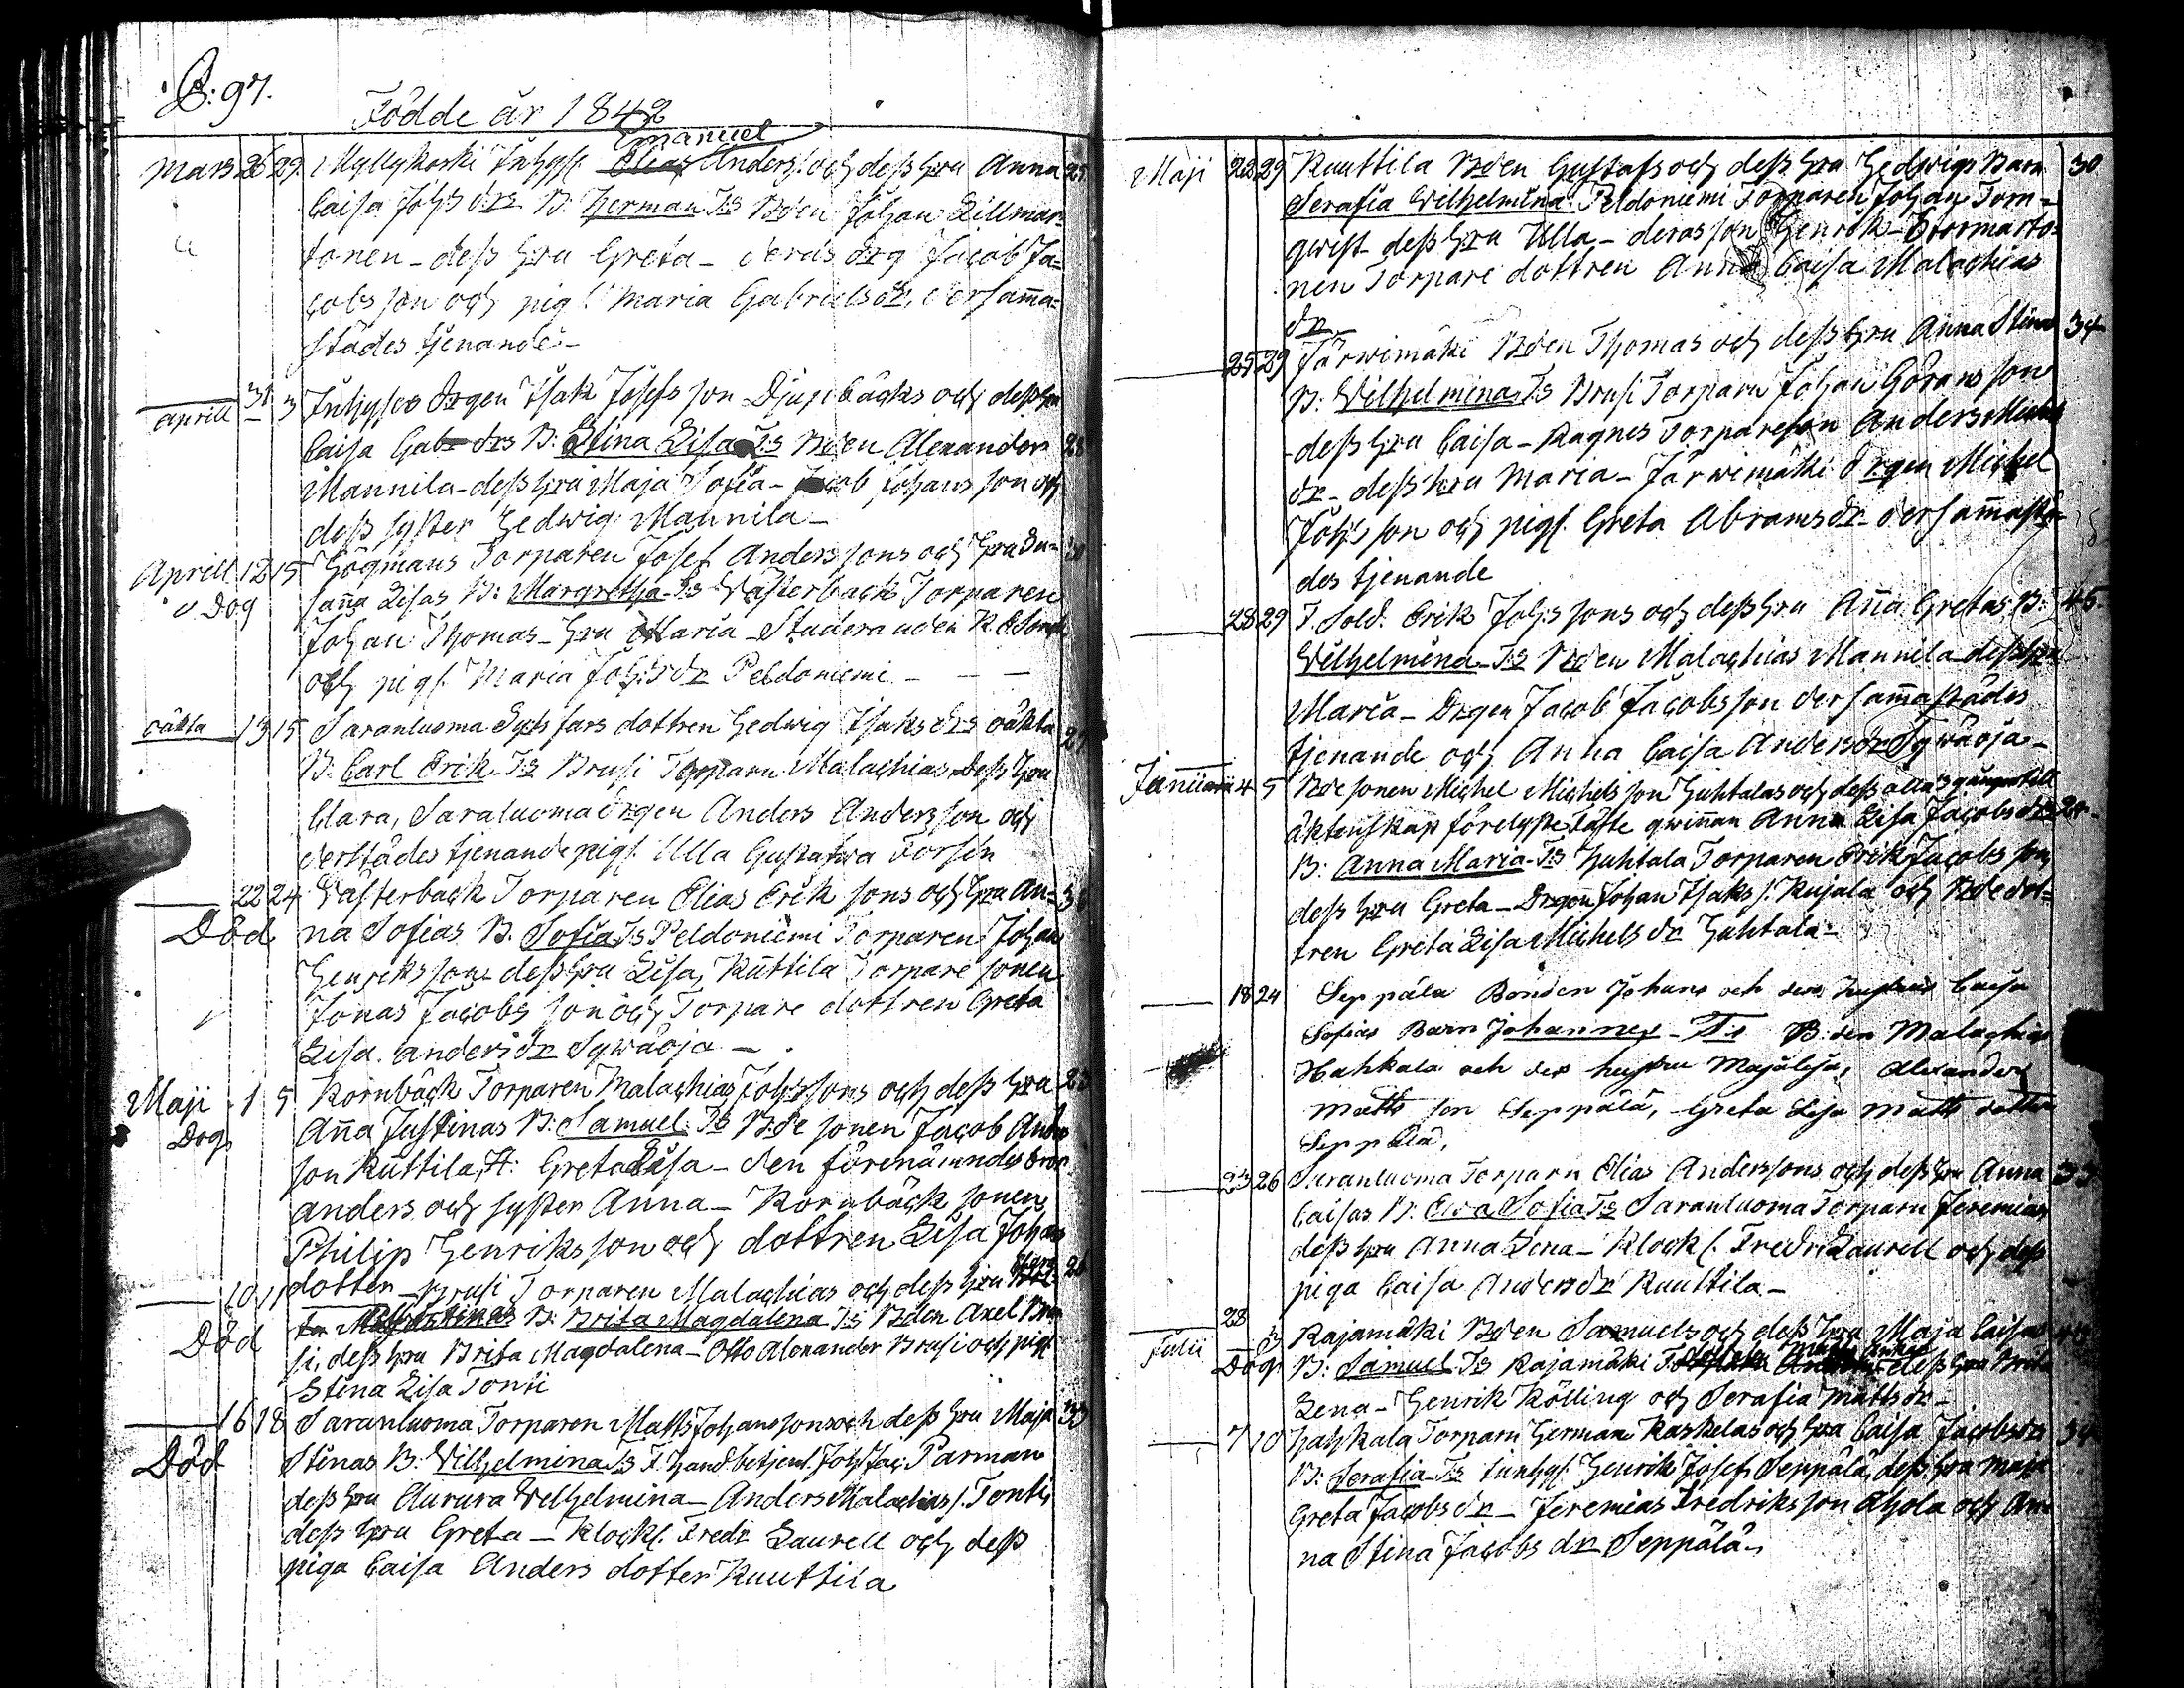 B: 97.
Födde år 1842
Emanuel
Mars 26 29. Myllykoski Inhys. Elias Anders. och dess hru Anna 25.
Caisa Joh:s drs B. Herman Ts Bden Johan Lillmar-
tonen - dess hru Greta - deras drg Jacob Ja-
cobsson och pig. Maria Gabrielsdr, dersam̄a-
städes tjenande -
Aprill 31 3 Inhyses drgen Isak Josefsson Djupbäcks och dess hru
Caisa Gab drs B: Stina Lisa Ts Bden Alexander 28
Mannila - dess hru Maja Sofia - Jacob Johansson och
dess syster Hedwig Mannila -
Aprill 12 15 Högmans Torparen Josef Anderssons och hru Su-
Dog san̄a Lisas B: Margretha Ts Wästerback Torparen
Johan Thomas - hru Maria - Studeranden
och pigs. Maria Joh:sdr Peldoniemi - - -
oäkta 13 15 Saranluoma Sytn fars dottren Hedwig Isaksdrs oäkta 27
B: Carl Erik - Ts Brusi Torparn Malachias, dess hru
Clara, Saraluoma drgen Anders Andersson och
derstädes tjenande pigs. Ulla Gustafwa Forsén
22 24 Wästerback Torparen Elias Eriksons och hru An-
Död na Sofias B. Sofia Ts Peldoniemi Torparen Johan
Henriksson dess hru Lisa, Kuttila Torpare sonen
Jonas Jacobsson och Torpare dottren Greta
Lisa Andersdr Sywäoja - .
Maji 1 5 Kornbäck Torparen Malachias Joh:ssons och dess hru 23
Dog An̄a Justinas B: Samuel Ts Bde sonen Jacob Anders
son Kuttila, H: Greta Lisa - den förenämndes bror
Anders och syster Anna - Kornbäck sonen
Philip Henriksson och dottren Lisa Johans
dotter
10 11 Brusi Torparen Malachias och dess hru 28
Död B: Brita Magdalena Ts Bden Axel Bru-
si, dess hru Brita Magdalena - Otto Alexander Brusi och pigs
Stina Lisa Tonti
16 18 Saranluoma Torparen Matts Johanssons och dess hru Maja 33
Död Stinas B: Wilhelmina Ts T. handbetjent Joh. Jac. Parman
dess hru Aurura Wilhelmina - Anders Malachias s. Tonti,
dess hru Greta - Klocks. Fredr Laurell och dess
piga Caisa Anders dotter Kuuttila
Maji 22 29 Kuuttila Bden Gustafs och dess hru Hedwigs Barn 30
Serafia Wilhelmina Peldoniemi Torparen Johan Torn-
qwist dess hru Ulla - deras son Henrik - Stormarto-
nen Torpare dottren Anna Caisa Malachias
dr -
25 29 Järwimäki Bden Thomas och dess hru Anna Stinas 34
B: Wilhelmina Ts Brusi Torparn Johan Göransson
dess hru Caisa - Ragnes Torpareson Anders Michels
dr - dess hru Maria - Järwimäki drgen Michel
Joh:sson och pigs. Greta Abramsdr - dersam̄astä-
des tjenande
28 29 T. Sold. Erik Joh:ssons och dess hru An̄a Gretas B: 45.
Wilhelmina - Ts Bden Malachias Mannila - dess hru
Maria - Drgen Jacob Jacobsson dersam̄astädes
tjenande och Anna Caisa Andersdr Sywäoja -
Januarii 4 5 Bde sonen Michel Michelsson Huhtalas och dess
äktenskap förelyste fäste qwin̄an Anna Lisa Jacobsdrs 20 -
B: Anna Maria - Ts Huhtala Torparen Erik Jacobsson
dess hru Greta - Drgen Johan Isaks s. Kujala och Bde dot-
tren Greta Lisa Michelsdr Huhtala -
18 24 Seppälä Bonden Johans och des hustrus Caisa
Sofias Barn Johannes - Ts B:den Malachias
Hahkala och des hustru Majalisa, Alexander
Matts son Seppälä, Greta Lisa Matts dotter
Seppälä,
23 26 Saranluoma Torparn Elias Anderssons och dess hru Anna 33
Caisas B: Ewa Sofia Ts Saranluoma Torparn Jeremias
dess hru Anna Lena - Klocks. Fredr Laurell och dess
piga Caisa Andersdr Kuuttila -
28
Julii 3 Rajamäki Bden Samuels och dess hru Maja Caisas 44
Dog B: Samuel Ts Rajamäki dess hru Brita
Lena - Henrik Kölling och Serafia Mattsdr -
7 10 Hahkala Torparn Herman Kaskelas och hru Caisa Jacobsdrs 34
B: Serafia - Ts Inhys. Henrik Josefs. Seppälä, dess hru Maja
Greta Jacobsdr - Jeremias Fredriksson Ahola och An-
na Stina Jacobs dr Seppälä -